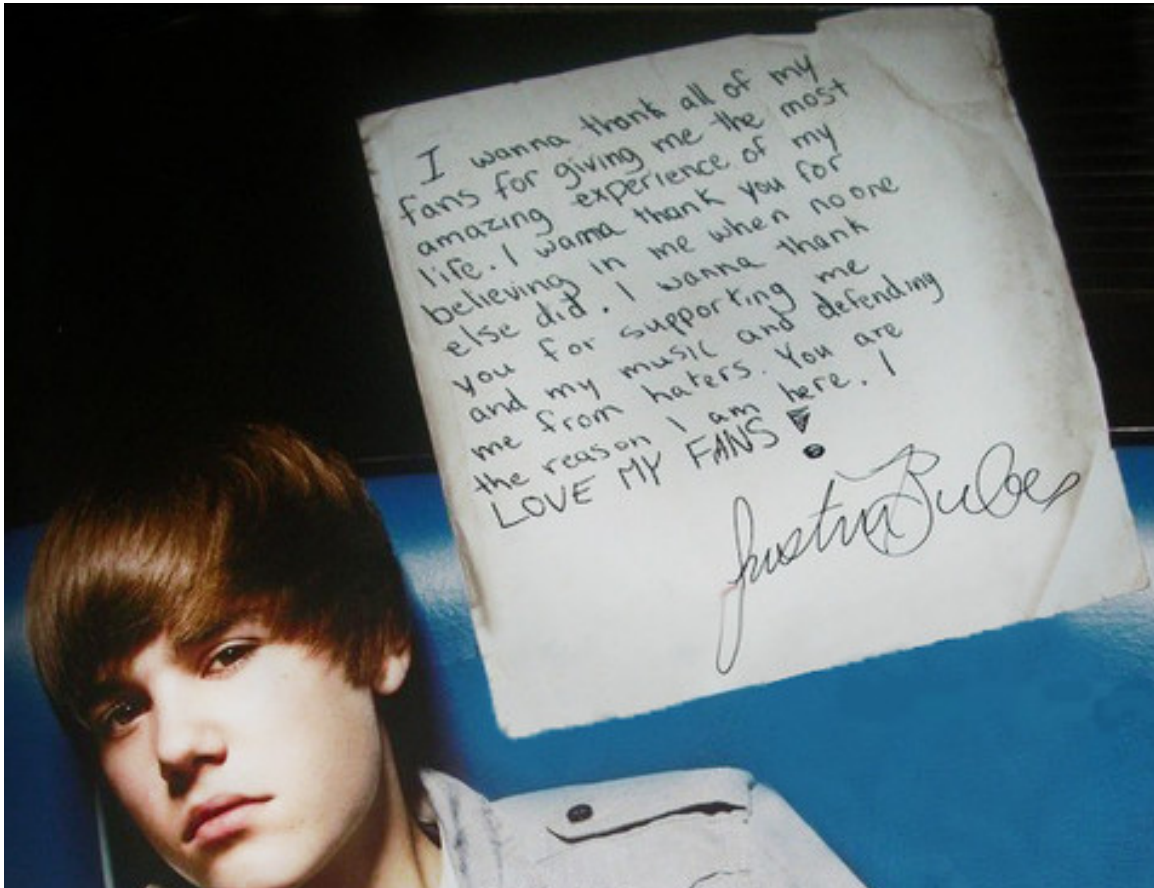 I wanna thank all of my
fans for giving me the most
amazing experience of my
life. I wanna thank you for
believing in me when no one
else did. I wanna thank
you for supporting me
and my music and defending
me from haters. You are
the reason I am here. I
LOVE MY FANS!
Justin Bieber